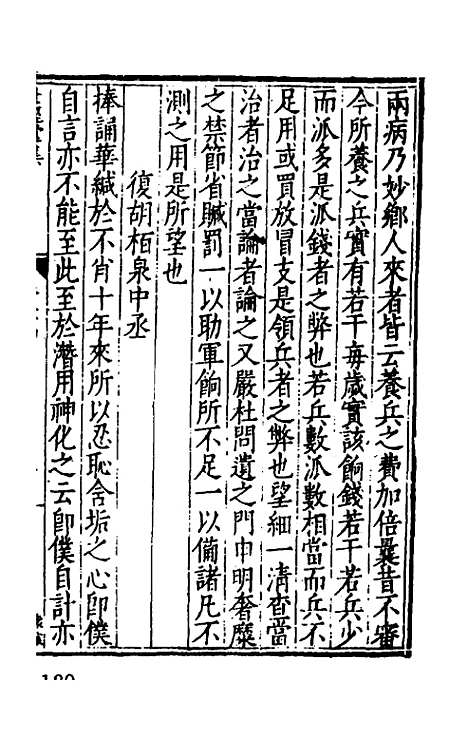 兩病乃妙鄉人來者皆云養兵之費加倍曩昔不審
今所養之兵實有若干每歲實該餉錢若干若兵少
而派多是派錢者之弊也若兵數派數相當而兵不
足用或買放冒支是領兵者之弊也望細一清查當
治者治之當論者論之又嚴杜問遺之門申明奢糜
之禁節省贓罰一以助軍餉所不足一以備諸凡不
測之用是所望也
復胡栢泉中丞
捧誦華緘於不肖十年來所以忍恥含垢之心卽僕
自言亦不能至此至於潛用神化之云卽僕自計亦